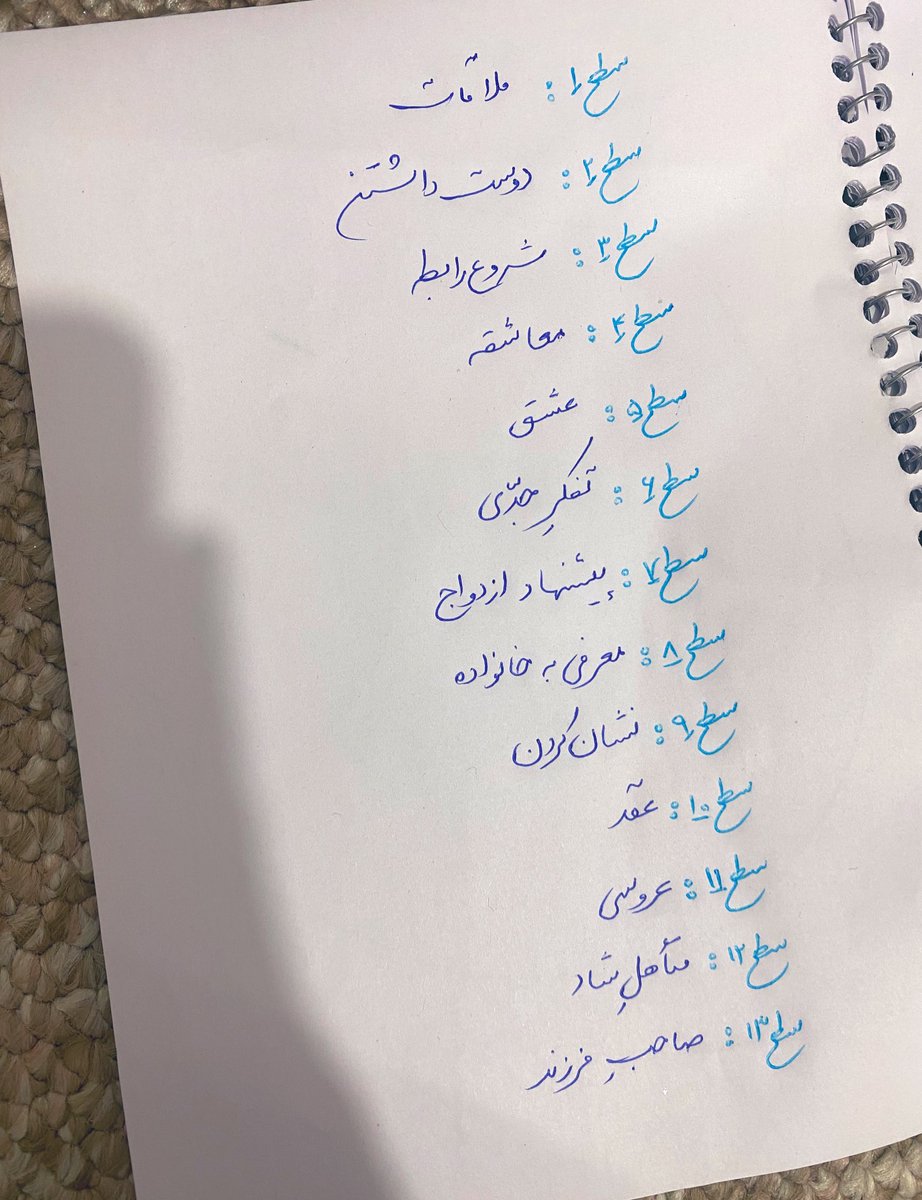 سطح ۱: ملاقات
سطح ۲: دوست داشتن
سطح ۳: شروع رابطه
سطح ۴: معاشقه
سطح ۵: عشق
سطح ۶: تفکرِ جدّی
سطح ۷: پیشنهاد ازدواج
سطح ۸: معرفی به خانواده
سطح ۹: نشان کردن
سطح ۱۰: عقد
سطح ۱۱: عروسی
سطح ۱۲: متأهلِ شاد
سطح ۱۳: صاحبِ فرزند